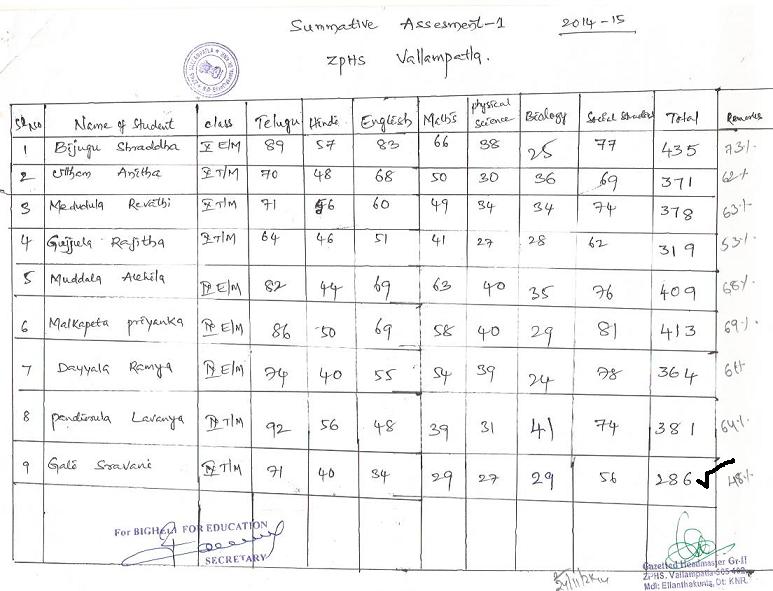 Summative Assesment-1 2014-15
ZPHS Vallampatla.
Sl No Name of Student class Telugu Hindi English Maths physical science Biology Social Studies Total Remarks
1 Bijugu Shraddha X E/M 89 57 83 66 38 25 77 435 73%
2 Anitha X T/M 70 48 68 50 30 36 69 371 62%
3 Medudula Revathi X T/M 71 56 60 49 34 34 74 378 63%
4 Gujjula Rajitha X T/M 64 46 51 41 27 28 62 319 53%
5 Muddala Akhila IX E/M 82 44 69 63 40 35 76 409 68%
6 Malkapeta priyanka IX E/M 86 50 69 58 40 29 81 413 69%
7 Dayyala Ramya IX E/M 74 40 55 54 39 24 78 364 61%
8 Lavanya IX T/M 92 56 48 39 31 41 74 381 64%
9 Gali Sravani IX T/M 71 40 34 29 27 29 56 286 ✓ 48%
For BIGHELP FOR EDUCATION
SECRETARY
Gazetted Headmaster Gr-II
ZPHS. Vallampatla-505 402
Mdl: Ellanthakunta, Dt: KNR.